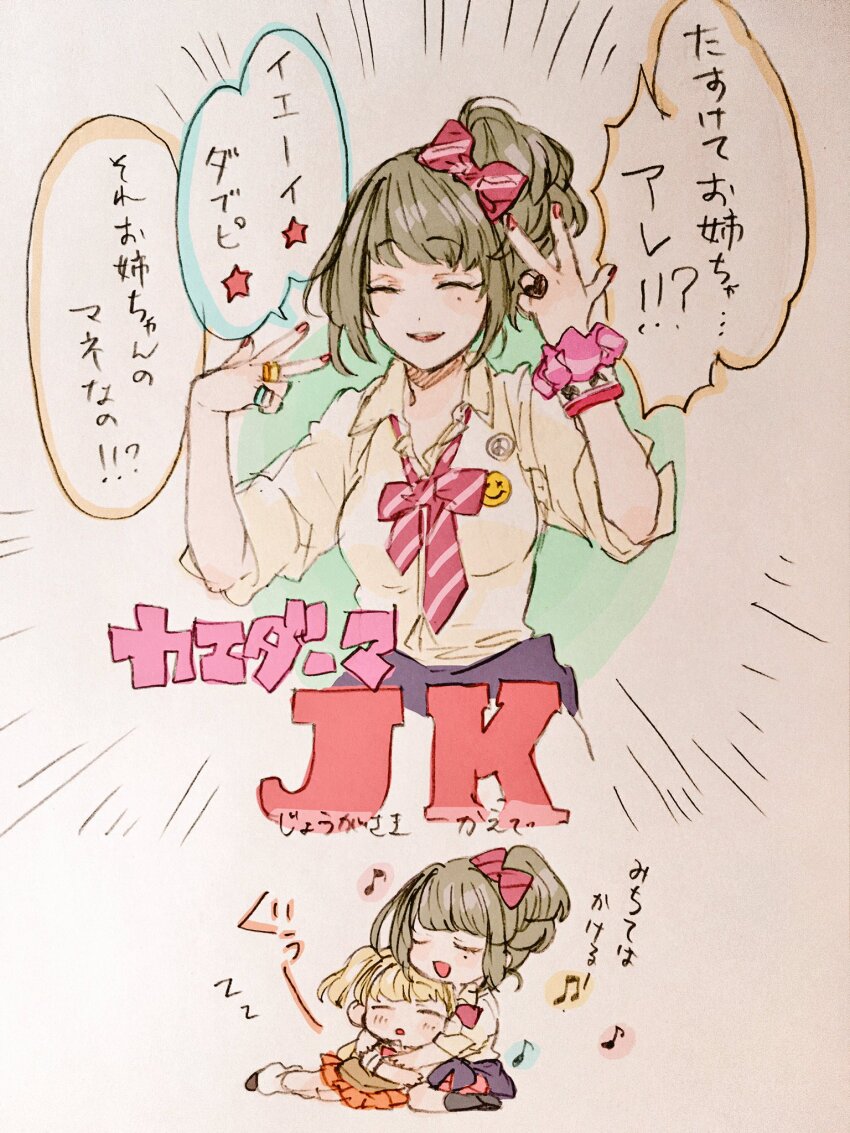 たすけてお姉ちゃ…
アレ!!?
イエーイ★
ダブピ★
それお姉ちゃんの
マネなの!!?
カエダーマ
JK
じょうがさき かえで
みちては
かける♪
ぐぅー
zz